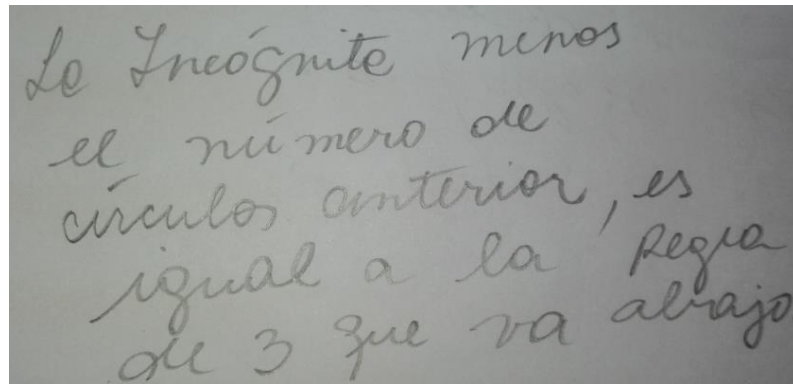 La Incógnita menos
el número de
círculos anterior, es
igual a la Regla
de 3 que va abajo